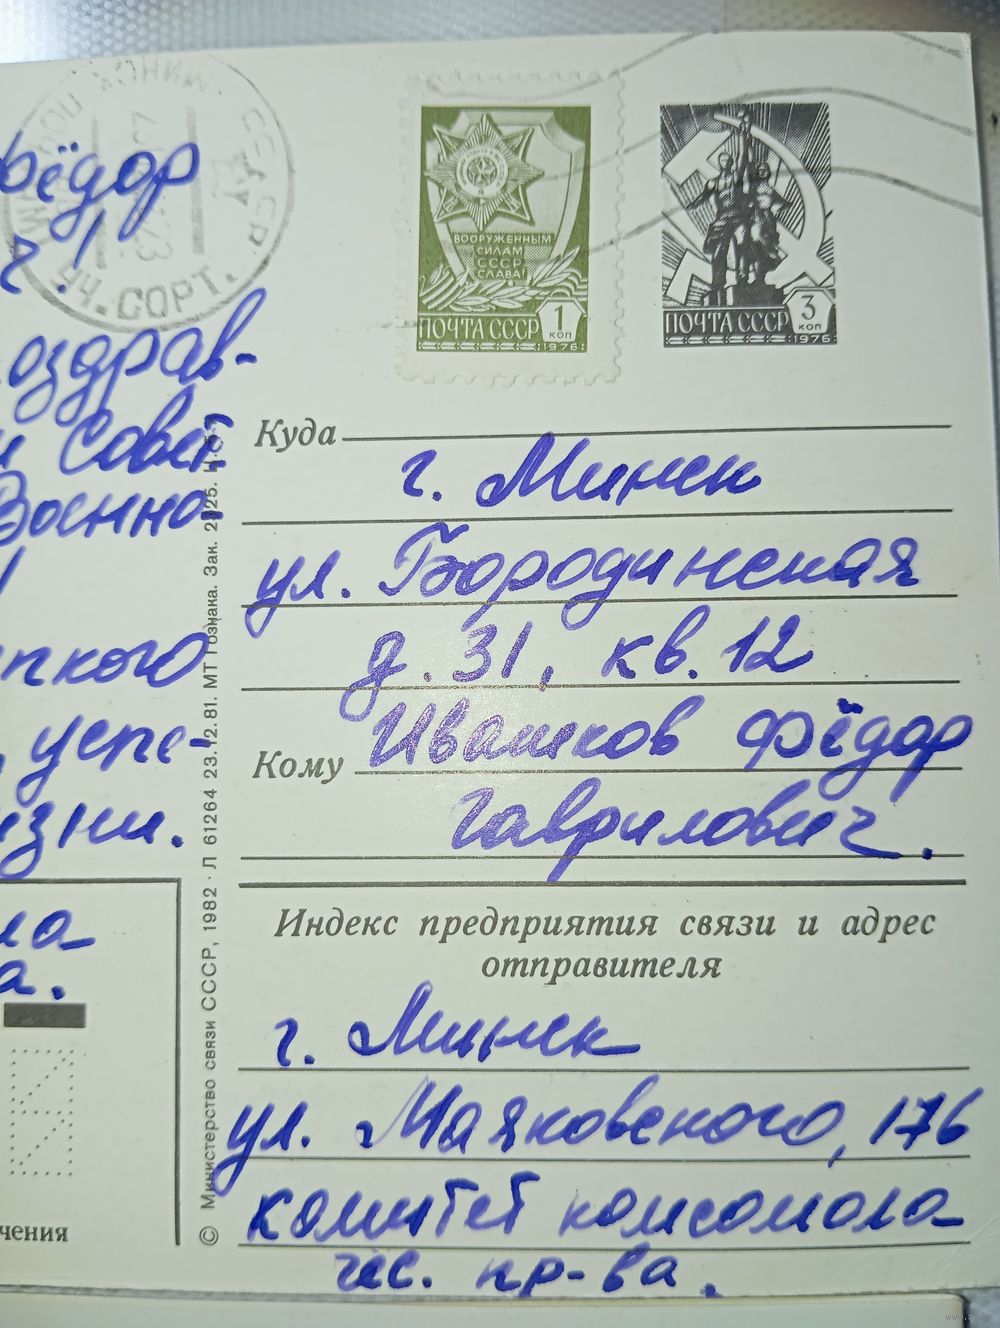 СССР
УЧ. СОРТ.
ВООРУЖЕННЫМ
СИЛАМ
СССР
СЛАВА!
ПОЧТА СССР 1 КОП
1976
ПОЧТА СССР 3 КОП
1976
Фёдор
ч!
оздрав-
и Совет.
Военно-
!
пкого
, успе-
изни.
ла
а.
чения
© Министерство связи СССР, 1982 · Л 61264 23.12.81. МТ Гознака. Зак.
Куда
г. Минск
ул. Бородинская
д. 31, кв. 12
Кому Ивашков Фёдор
Гаврилович.
Индекс предприятия связи и адрес
отправителя
г. Минск
ул. Маяковского, 176
комитет комсомола
чес. пр-ва.